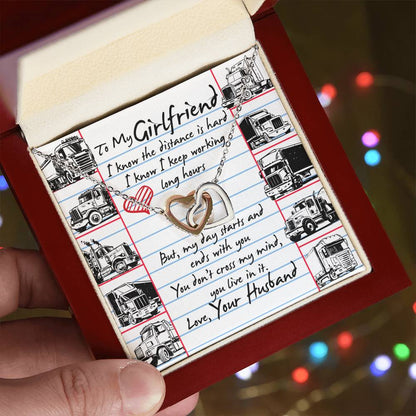 To My Girlfriend
I know the distance is hard
I know I keep working
long hours
But, my day starts and
ends with you
You don't cross my mind,
you live in it.
Love, Your Husband